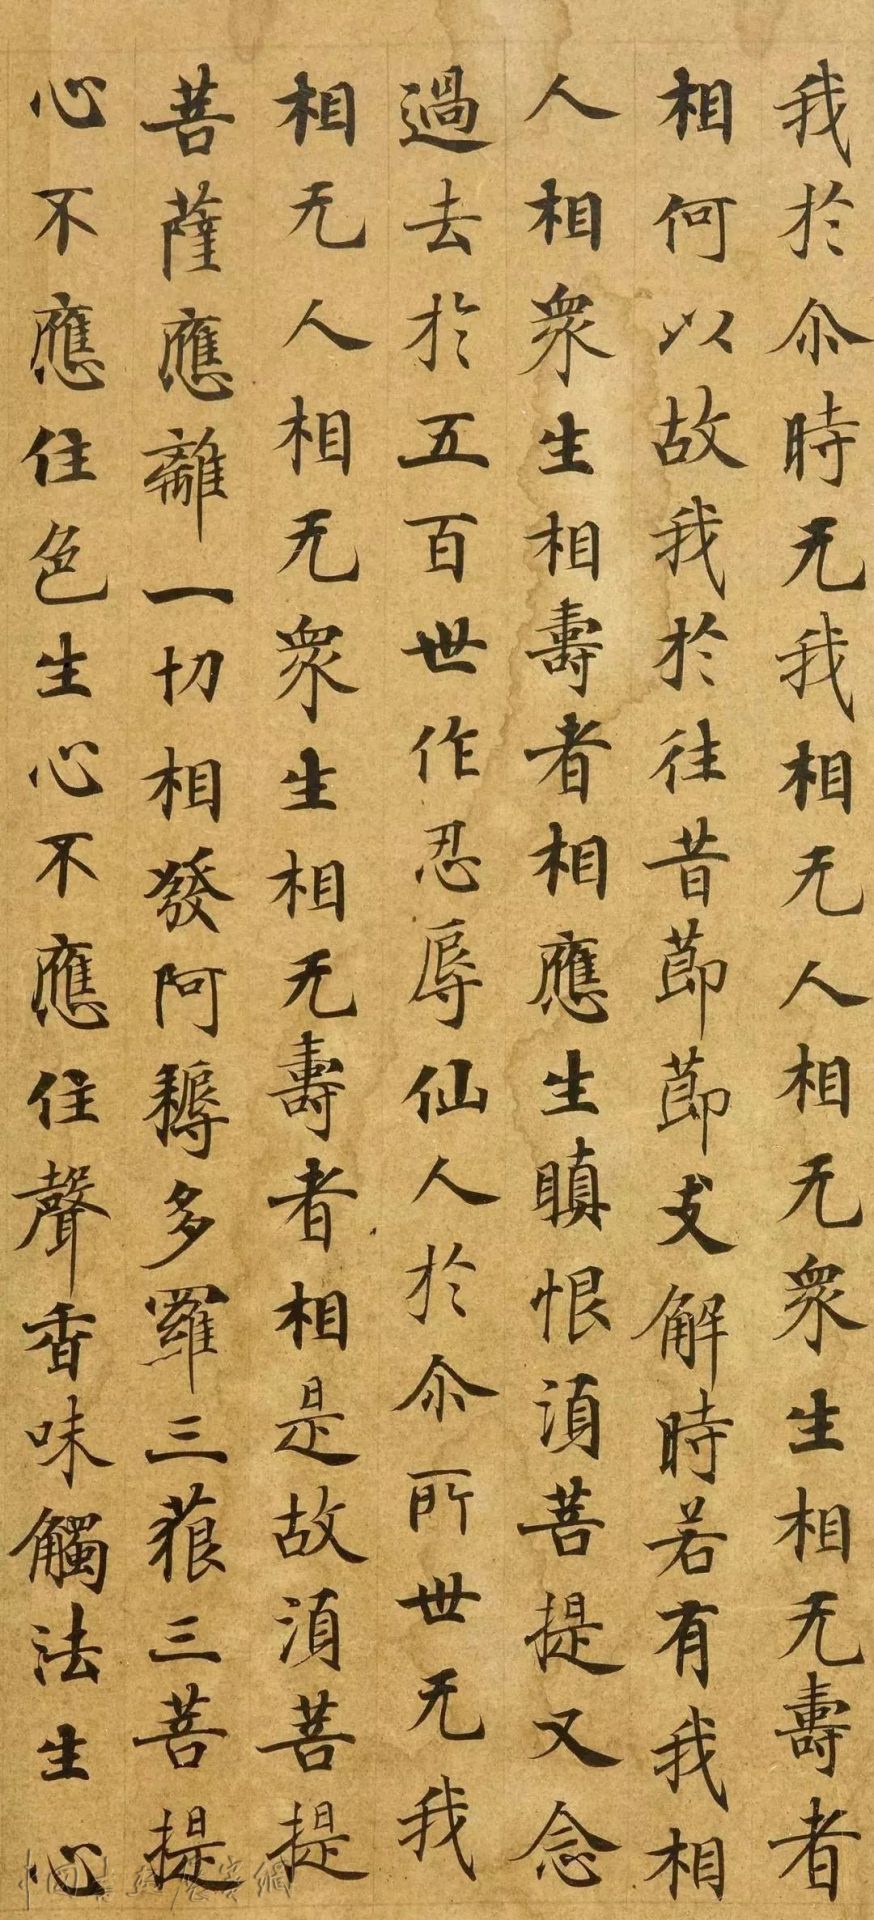 我於尒時无我相无人相无衆生相无壽者
相何以故我於往昔莭莭支解時若有我相
人相衆生相壽者相應生瞋恨湏菩提又念
過去於五百世作忍辱仙人於尒所世无我
相无人相无衆生相无壽者相是故湏菩提
菩薩應離一切相發阿耨多羅三藐三菩提
心不應住色生心不應住聲香味觸法生心